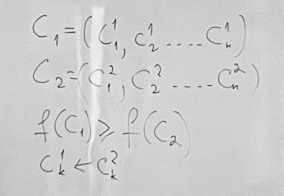 C₁ = (C₁¹, C₂¹ ..... Cₙ¹)
C₂ = (C₁², C₂² ..... Cₙ²)
f(C₁) ⩾ f(C₂)
Cₖ¹ ← Cₖ²